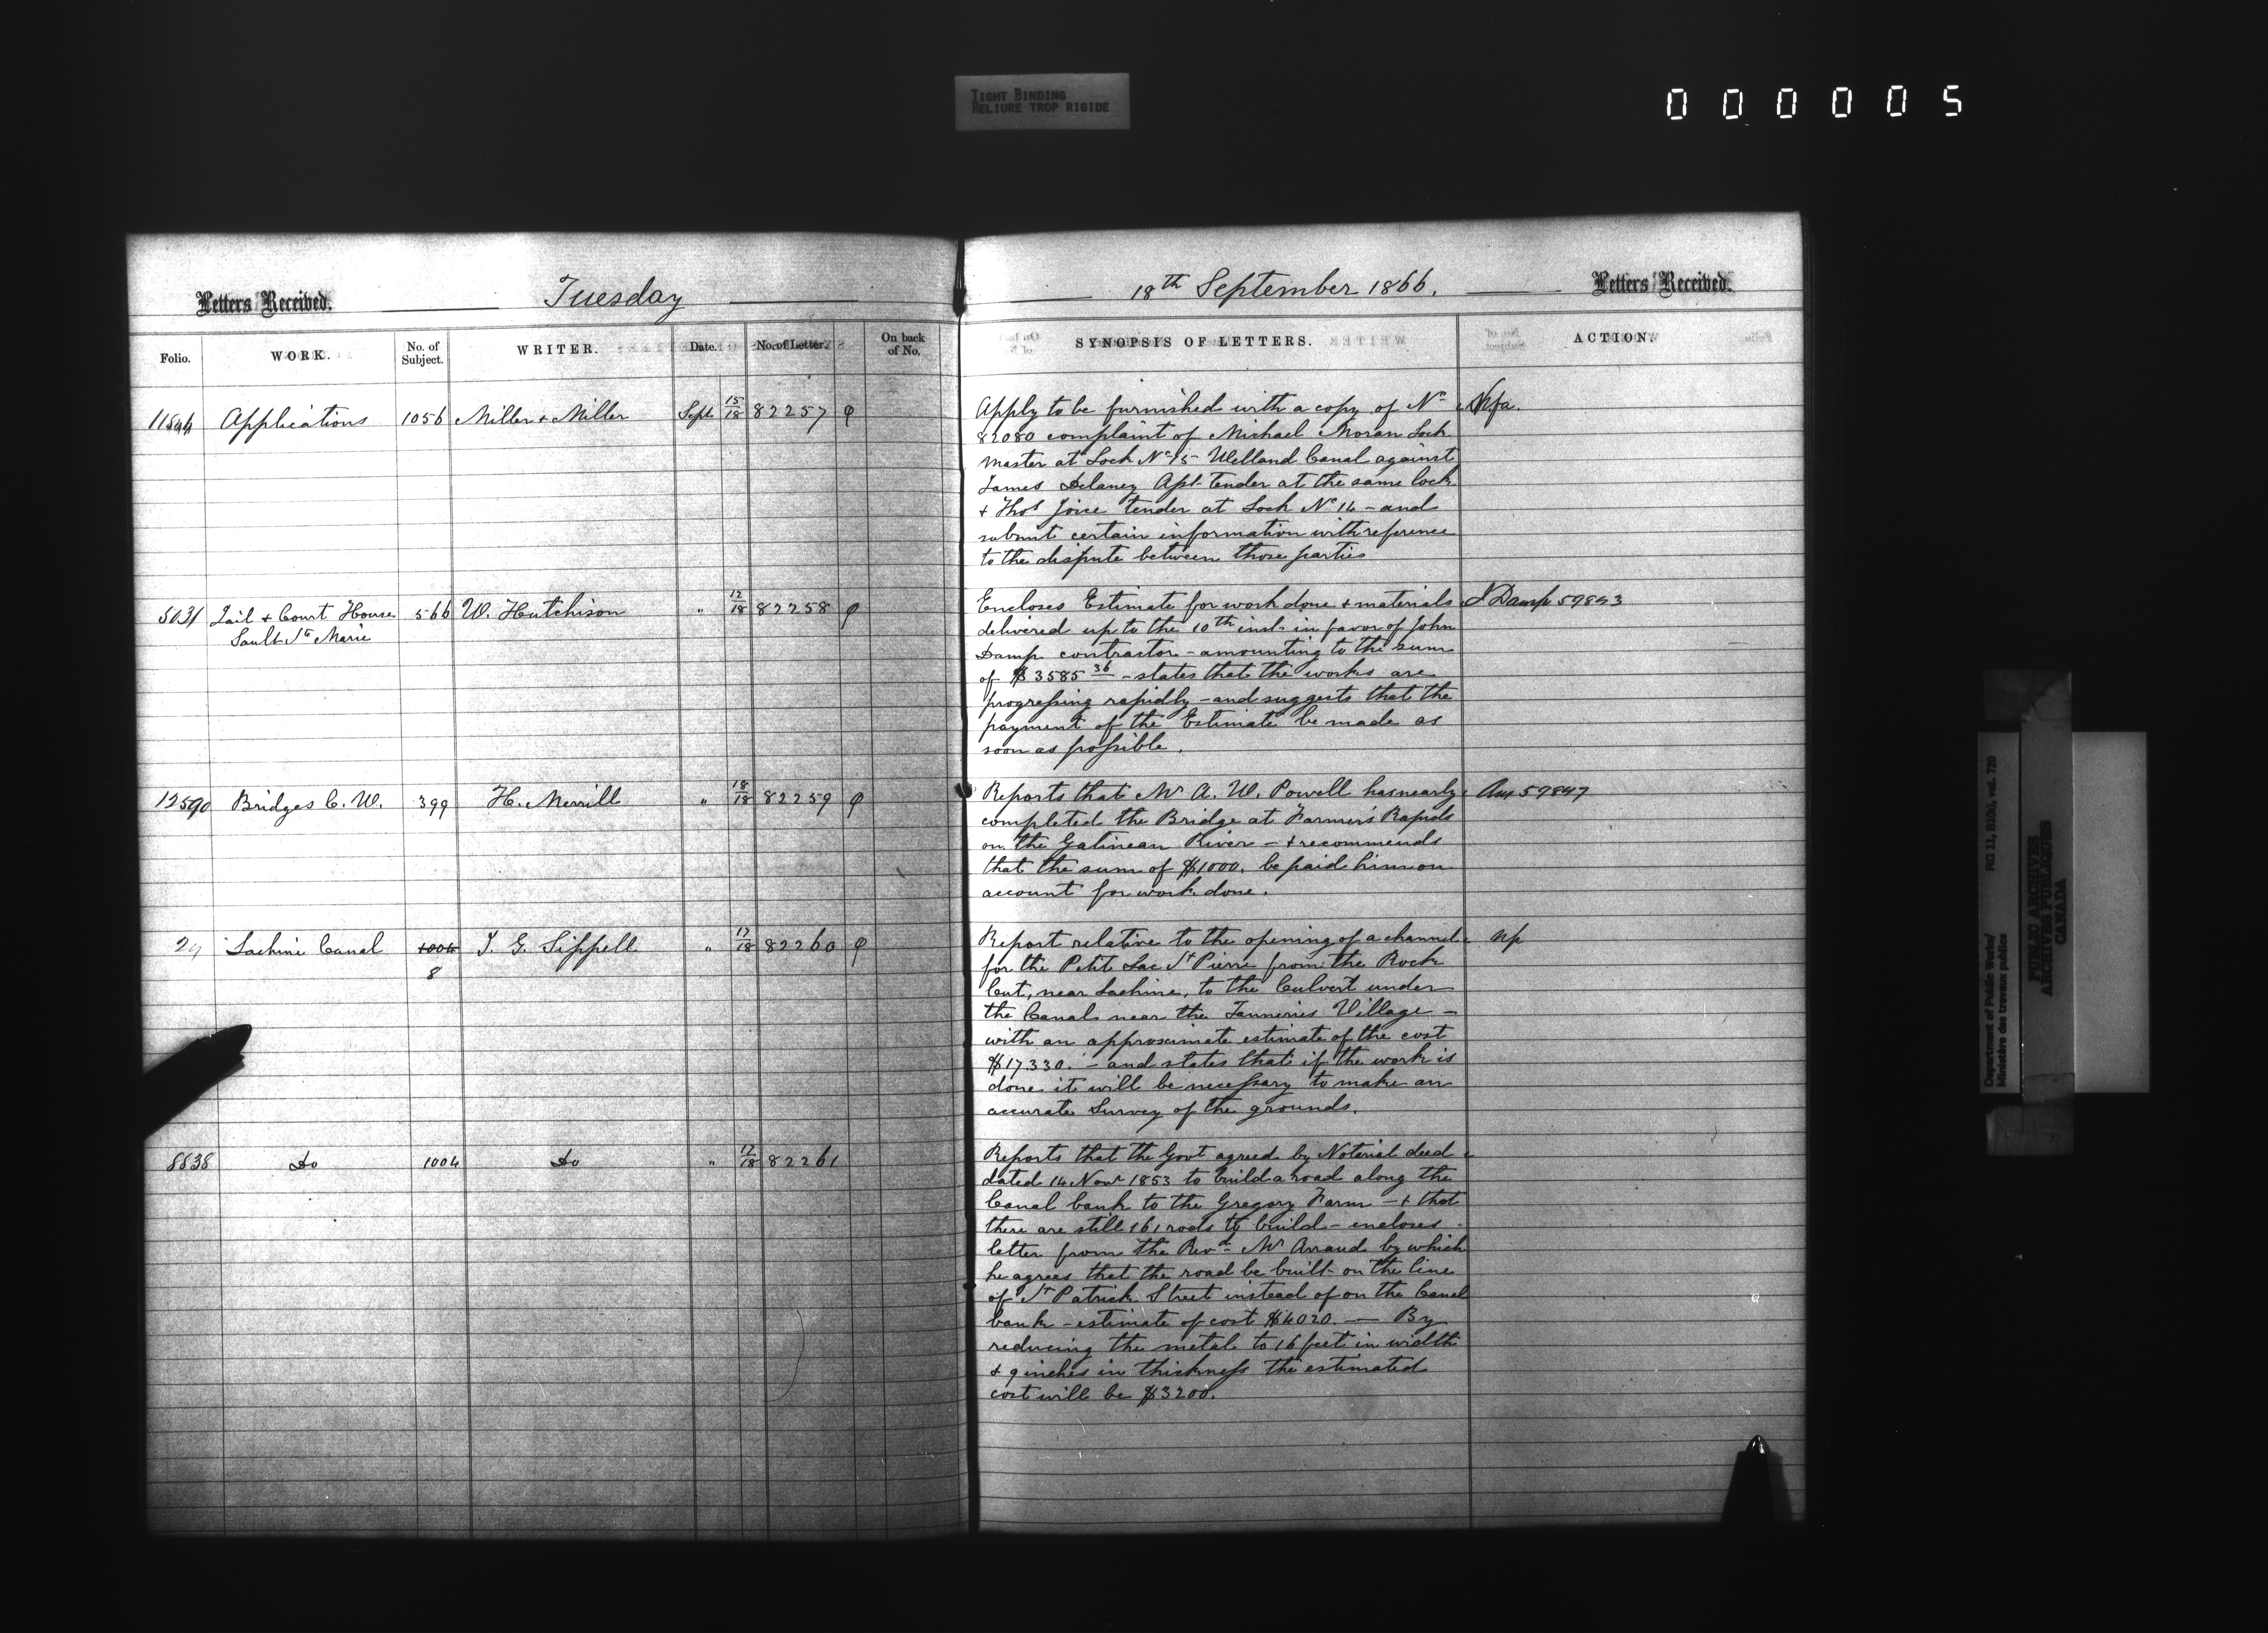 TIGHT BINDING
RELIURE TROP RIGIDE
000005
Letters Received. Tuesday
Folio. WORK. No. of Subject. WRITER. Date. No. of Letter. On back of No.
11544 Applications 1056 Miller & Miller Sept 15/18 82257
5031 Jail & Court House 566 W. Hutchison " 12/18 82258
Sault Ste Marie
12590 Bridges C. W. 399 H. Merrill " 18/18 82259
29 Lachine Canal 1004 T. G. Sippell " 17/18 82260
8
8838 Do 1004 Do " 17/18 82261
18th September 1866. Letters Received.
SYNOPSIS OF LETTERS. ACTION.
Apply to be furnished with a copy of No Nfa.
82080 complaint of Michael Moran Lock
master at Lock No 15 Welland Canal against
James Delaney Asst tender at the same lock
& Thos Joice tender at Lock No 14 - and
submit certain information with reference
to the dispute between those parties
Encloses Estimate for work done & materials J Damp 59843
delivered up to the 10th inst. in favor of John
Damp contractor - amounting to the sum
of $3585 36 - states that the works are
progressing rapidly - and suggests that the
payment of the Estimate be made as
soon as possible.
Reports that Mr A. W. Powell has nearly Aus 59847
completed the Bridge at Farmer's Rapids
on the Gatineau River - & recommends
that the sum of $1000. be paid him on
account for work done.
Report relative to the opening of a channel np
for the Petit Lac St Pierre from the Rock
Cut, near Lachine, to the Culvert under
the Canal near the Tanneries Village -
with an approximate estimate of the cost
$17330. - and states that if the work is
done it will be necessary to make an
accurate Survey of the grounds.
Reports that the Govt agreed by Notarial deed
dated 14 Novr 1853 to build a road along the
Canal bank to the Gregory Farm - & that
there are still 161 rods to build - encloses
letter from the Revd Mr Arraud by which
he agrees that the road be built on the line
of St Patrick Street instead of on the Canal
bank - estimate of cost $4020. - By
reducing the metal to 16 feet in width
& 9 inches in thickness the estimated
cost will be $3200.
Department of Public Works/ RG 11, B1(b), vol. 720
Ministère des travaux publics
PUBLIC ARCHIVES
ARCHIVES PUBLIQUES
CANADA